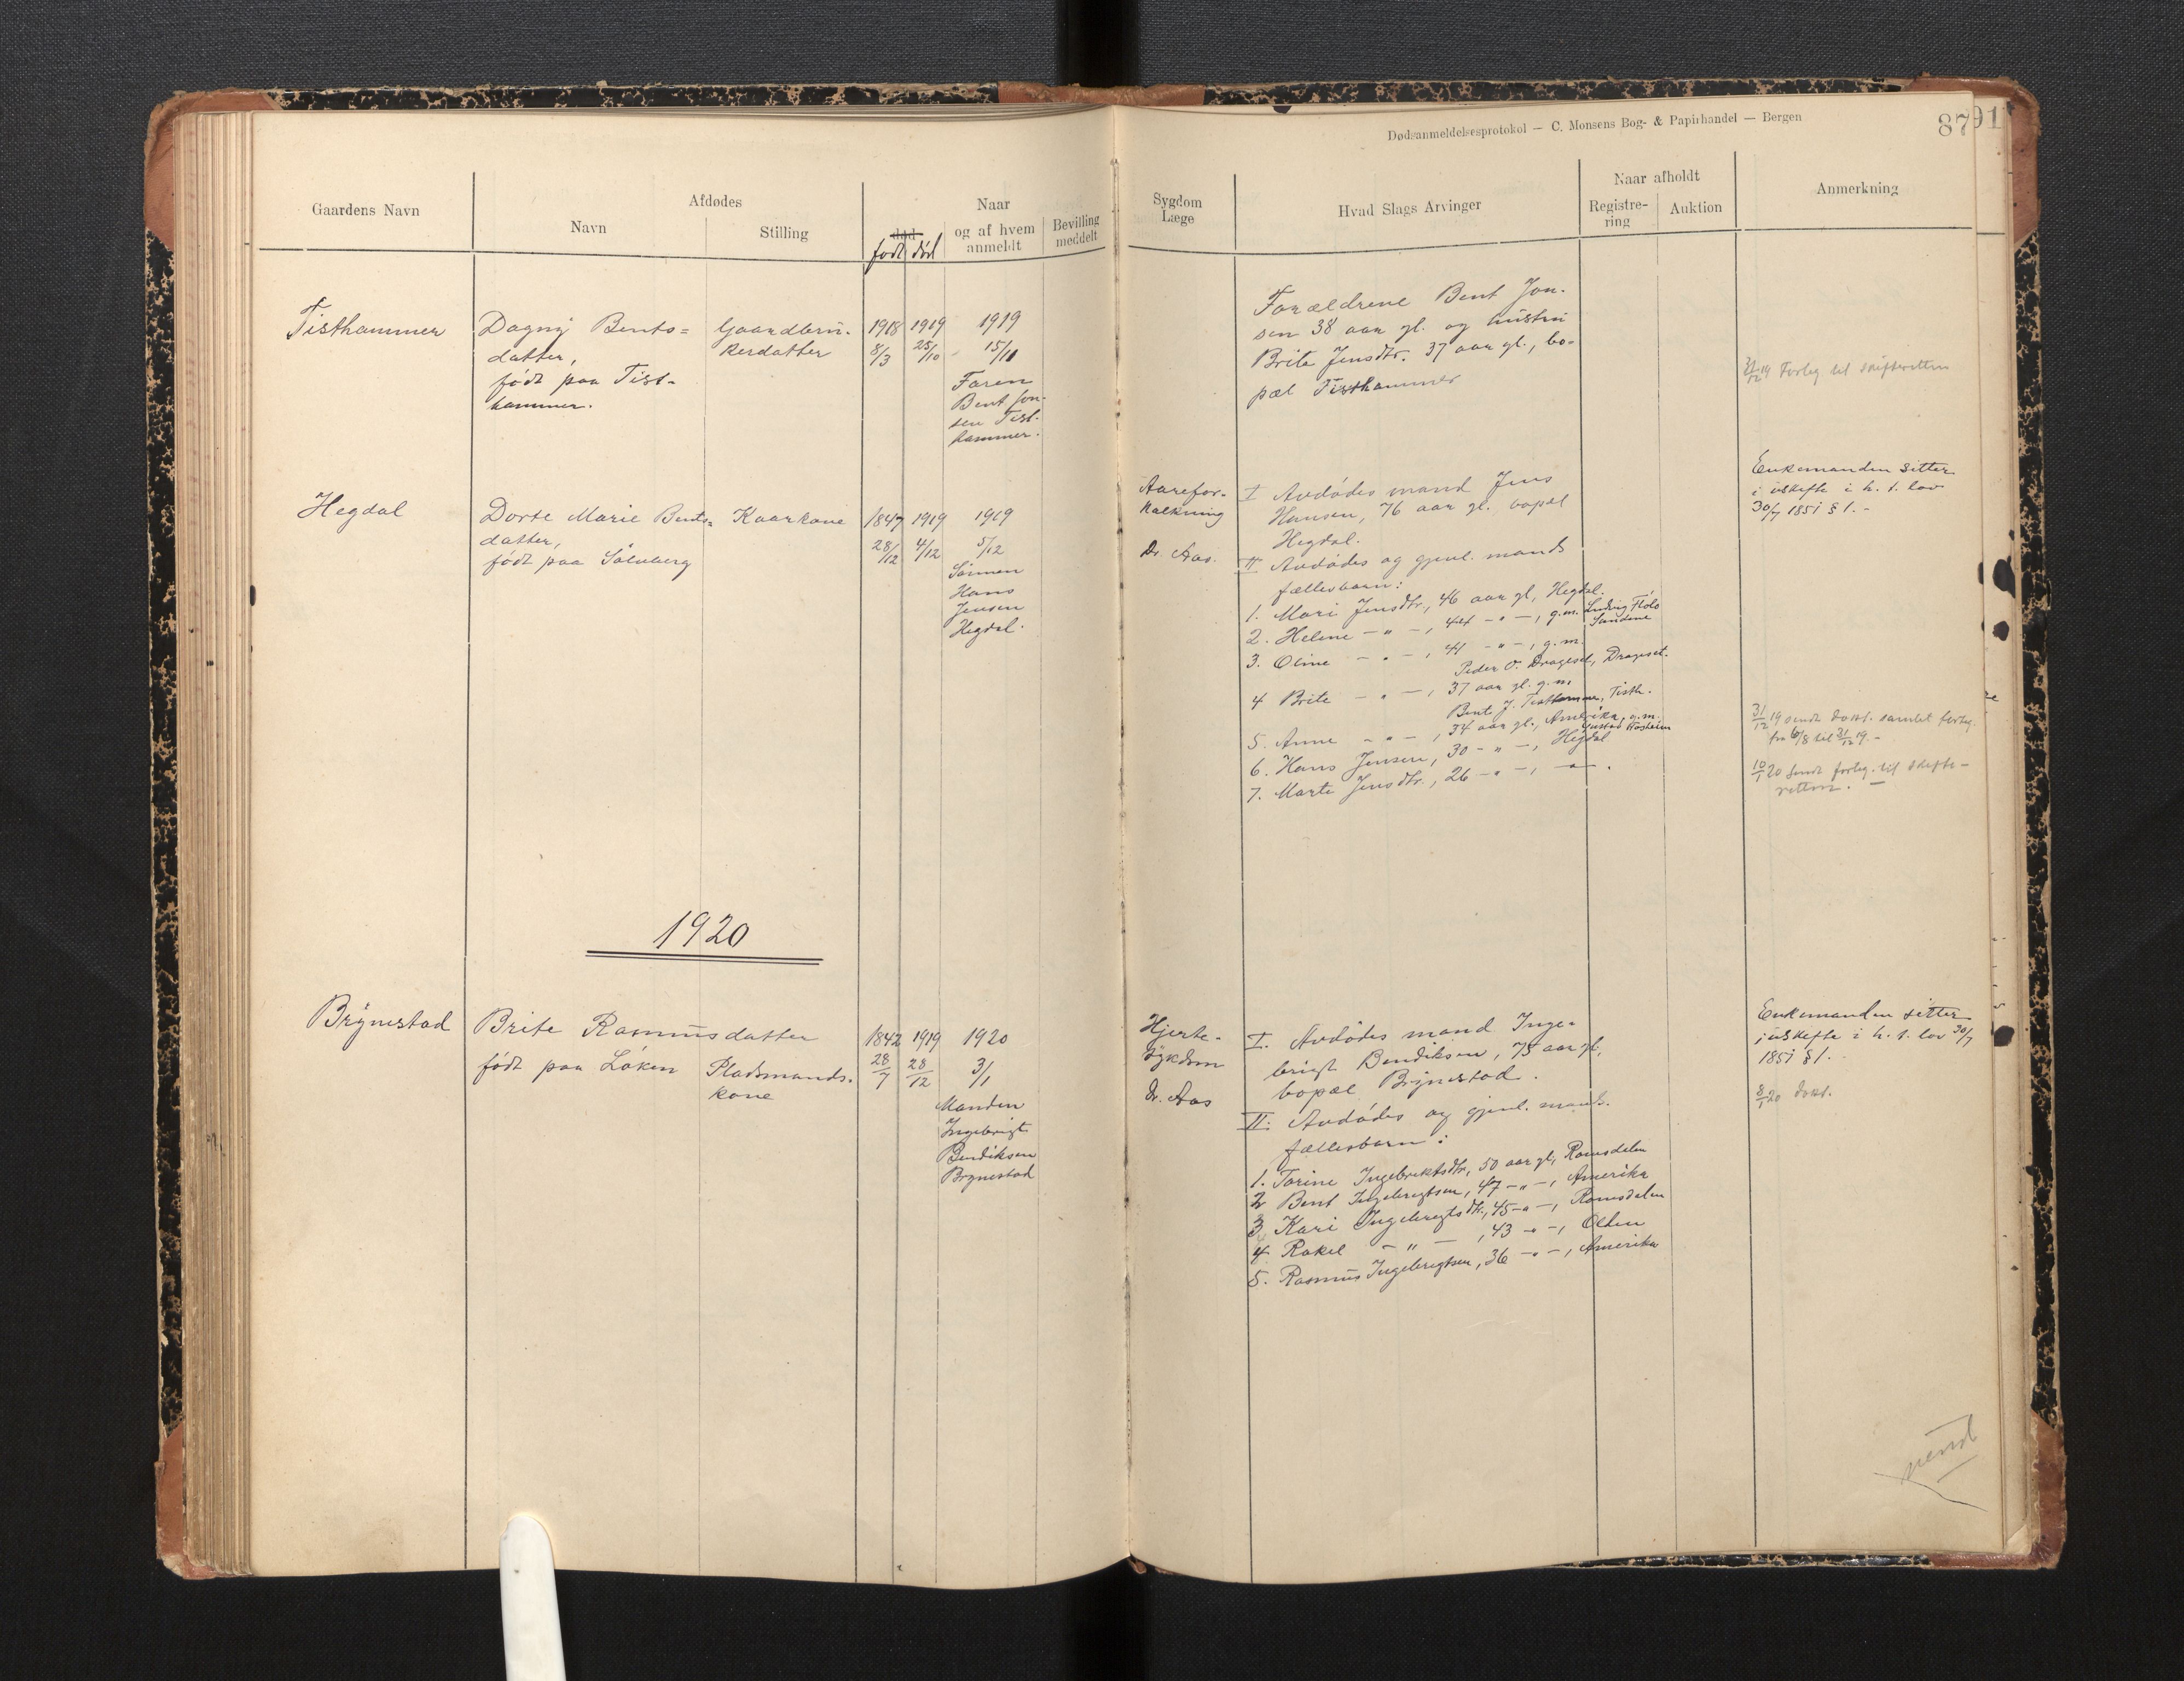 Dødsanmeldelsesprotokol — C. Monsens Bog- & Papirhandel — Bergen
87
91
Gaardens Navn
Afdødes
Navn
Stilling
død
født død
Naar
og af hvem
anmeldt
Bevilling
meddelt
Sygdom
Læge
Hvad Slags Arvinger
Naar afholdt
Registre-
ring
Auktion
Anmerkning
Tisthammer
Dagny Bents=
datter,
født paa Tist-
hammer.
Gaardbru-
kerdatter
1918
8/3
1919
25/10
1919
15/11
Faren
Bent Jon-
sen Tist-
hammer.
Forældrene Bent Jon-
sen 38 aar gl. og hustru
Brite Jensdtr. 37 aar gl., bo-
pæl Tisthammer
31/12 19 Forteg til skifteretten
Hegdal
Dorte Marie Bents=
datter,
født paa Sølvberg
Kaarkone
1847
28/12
1919
4/12
1919
5/12
Sønnen
Hans
Jensen
Hegdal.
Aarefor-
kalkning
Dr. Aas.
I Avdødes mand Jens
Hansen, 76 aar gl. bopæl
Hegdal.
II Avdødes og gjenl. mands
fællesbarn:
1. Mari Jensdtr., 46 aar gl, Hegdal.
2. Helene — " —, 44 — " —, g.m. Ludvig Flølo
Sandene
3. Oline — " —, 41 — " —, g.m.
Peder O. Drageset, Drageset.
4 Brite — " —, 37 aar gl. g.m.
Bent J. Tisthammer, Tisth.
5. Anne — " —, 34 aar gl., Amerika, g.m.
Gustad Aasheim
6. Hans Jensen, 30 — " —, Hegdal
7. Marte Jensdtr., 26 — " —, — " — .
Enkemanden sitter
i uskifte i h. t. lov
30/7 1851 § 1. -
31/12 19 sendt dokt. samlet forteg.
fra 6/8 til 31/12 19. -
10/1 20 Sendt forteg. til skifte-
retten. —
1920
Brynestad
Brite Rasmusdatter
født paa Løken
Pladsmands-
kone
1842
28/7
1919
28/12
1920
3/1
Manden
Ingebrigt
Bendiksen
Brynestad
Hjerte-
sykdom
Dr. Aas
I. Avdødes mand Inge-
brigt Bendiksen, 75 aar gl,
bopæl Brynestad.
II. Avdødes og gjenl. mands.
fællesbarn:
1. Torine Ingebriktsdtr, 50 aar gl, Romsdalen
2 Bent Ingebrigtsen, 47 — " —, Amerika
3 Kari Ingebrigtsdtr., 45 — " —, Romsdalen
4. Rakel — " —, 43 — " —, Olden
5. Rasmus Ingebrigtsen, 36 — " —, Amerika
Enkemanden sitter
i uskifte i h. t. lov 30/7
1851 § 1.
8/1 20 dokt.
vend